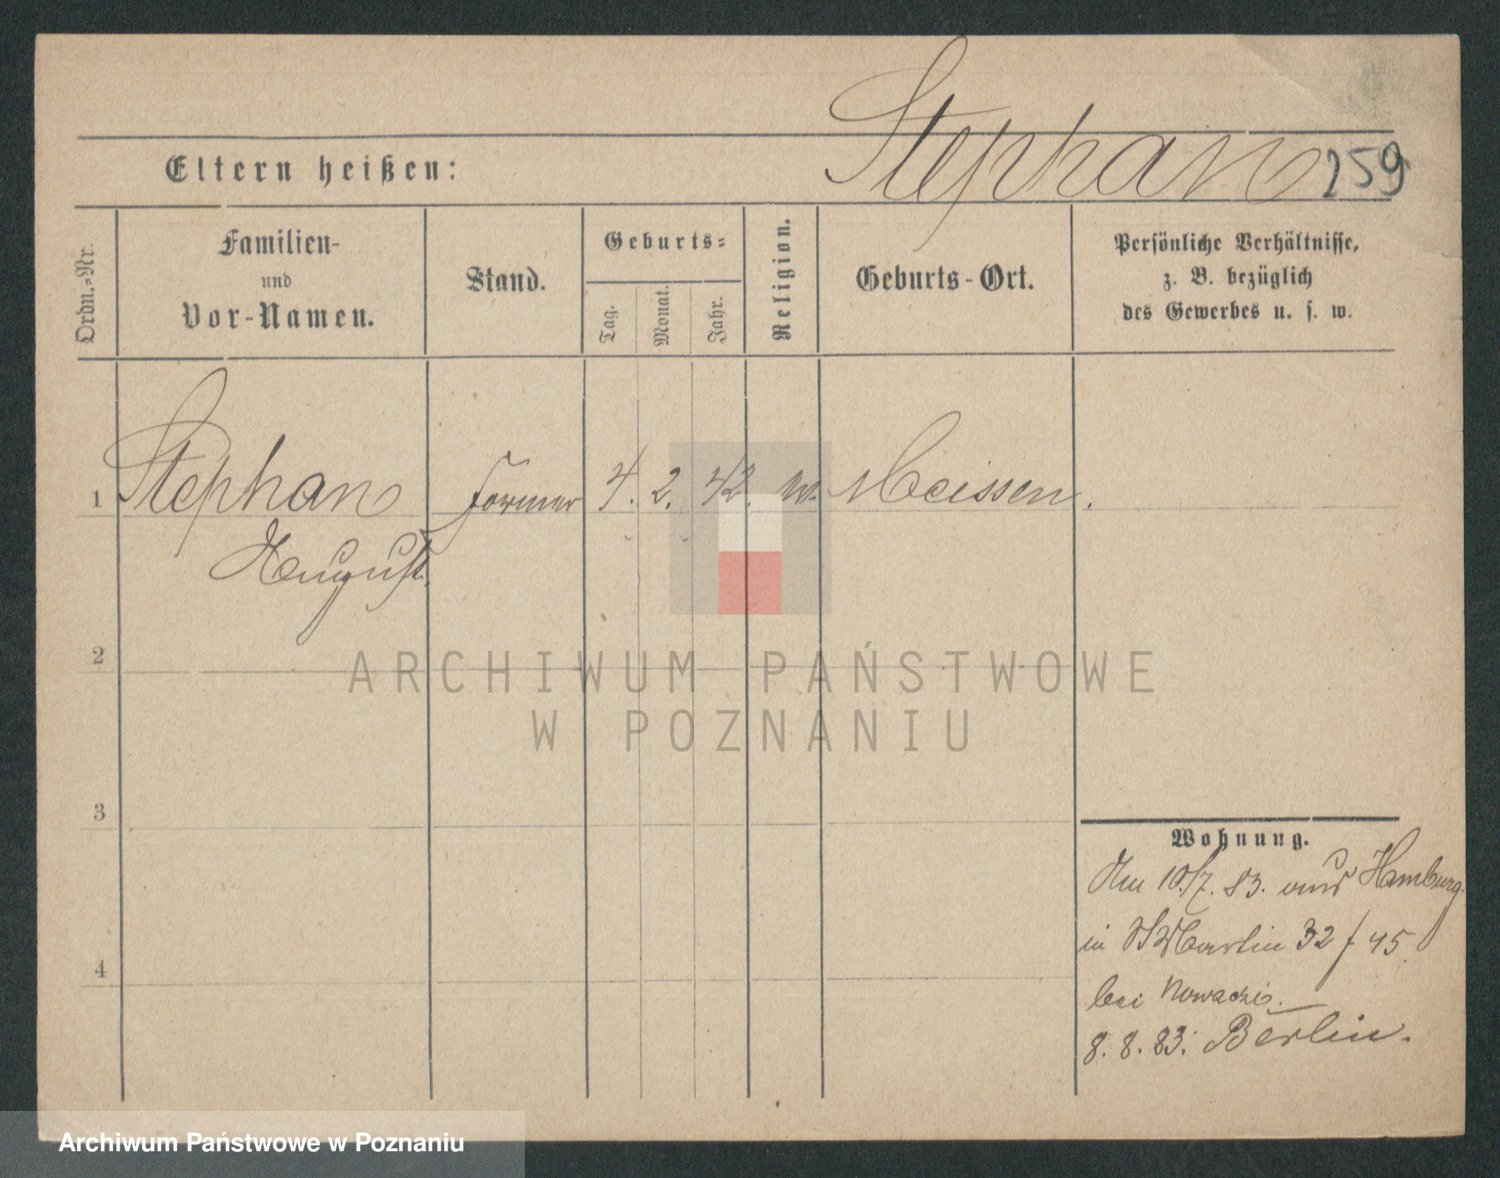 Stephan 259
Eltern heißen:
Ordn.-Nr.
Familien-
und
Vor-Namen.
Stand.
Geburts-
Tag.
Monat.
Jahr.
Religion.
Geburts-Ort.
Persönliche Verhältnisse,
z. B. bezüglich
des Gewerbes u. s. w.
1 Stephan Former 4. 2. 42. Meissen.
August.
2
3
4
Wohnung.
Am 10/7. 83. aus Hamburg.
in 32 / 45.
bei
8. 8. 83. Berlin.
ARCHIWUM PAŃSTWOWE
W POZNANIU
Archiwum Państwowe w Poznaniu